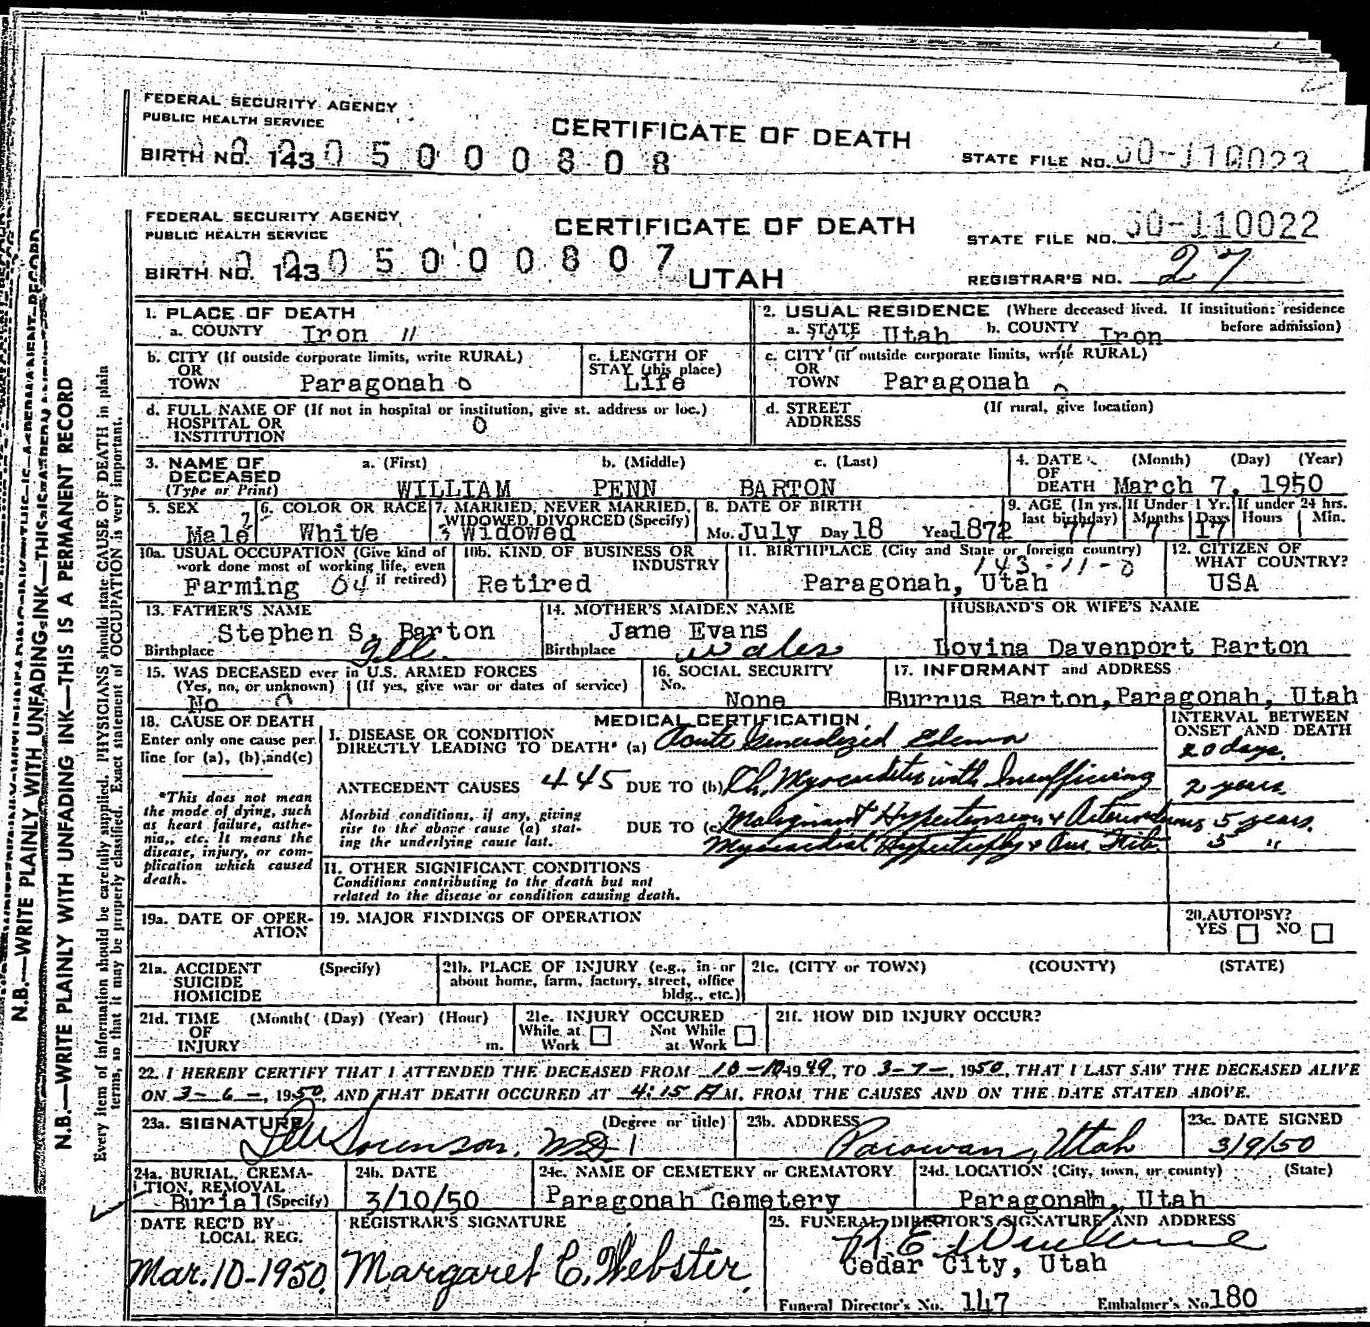 FEDERAL SECURITY AGENCY
PUBLIC HEALTH SERVICE
CERTIFICATE OF DEATH
BIRTH NO. 143 05000808
STATE FILE NO. 50-110023
FEDERAL SECURITY AGENCY
PUBLIC HEALTH SERVICE
CERTIFICATE OF DEATH
UTAH
BIRTH NO. 143 05000807
STATE FILE NO. 50-110022
REGISTRAR'S NO. 27
N.B.—WRITE PLAINLY WITH UNFADING INK—THIS IS A PERMANENT RECORD
Every item of information should be carefully supplied. PHYSICIANS should state CAUSE OF DEATH in plain
terms, so that it may be properly classified. Exact statement of OCCUPATION is very important.
1. PLACE OF DEATH
a. COUNTY Iron 11
2. USUAL RESIDENCE (Where deceased lived. If institution: residence before admission)
a. STATE Utah b. COUNTY Iron
b. CITY (If outside corporate limits, write RURAL)
OR
TOWN Paragonah 0
c. LENGTH OF
STAY (this place)
Life
c. CITY (if outside corporate limits, write RURAL)
OR
TOWN Paragonah
d. FULL NAME OF (If not in hospital or institution, give st. address or loc.)
HOSPITAL OR
INSTITUTION 0
d. STREET
ADDRESS
(If rural, give location)
3. NAME OF
DECEASED
(Type or Print)
a. (First) b. (Middle) c. (Last)
WILLIAM PENN BARTON
4. DATE
OF
DEATH
(Month) (Day) (Year)
March 7, 1950
5. SEX
Male
6. COLOR OR RACE
White
7. MARRIED, NEVER MARRIED,
WIDOWED, DIVORCED (Specify)
3 Widowed
8. DATE OF BIRTH
Mo. July Day 18 Year 1872
9. AGE (In yrs. last birthday) 77
If Under 1 Yr. Months 7 Days 17
If under 24 hrs. Hours Min.
10a. USUAL OCCUPATION (Give kind of
work done most of working life, even
if retired)
Farming 04
10b. KIND OF BUSINESS OR
INDUSTRY
Retired
11. BIRTHPLACE (City and State or foreign country)
143-11-0
Paragonah, Utah
12. CITIZEN OF
WHAT COUNTRY?
USA
13. FATHER'S NAME
Stephen S. Barton
Birthplace Ill.
14. MOTHER'S MAIDEN NAME
Jane Evans
Birthplace Wales
HUSBAND'S OR WIFE'S NAME
Lovina Davenport Barton
15. WAS DECEASED ever in U.S. ARMED FORCES
(Yes, no, or unknown) (If yes, give war or dates of service)
No 0
16. SOCIAL SECURITY
No.
None
17. INFORMANT and ADDRESS
Burrus Barton, Paragonah, Utah
18. CAUSE OF DEATH
Enter only one cause per
line for (a), (b), and (c)
*This does not mean
the mode of dying, such
as heart failure, asthe-
nia, etc. it means the
disease, injury, or com-
plication which caused
death.
MEDICAL CERTIFICATION
INTERVAL BETWEEN
ONSET AND DEATH
I. DISEASE OR CONDITION
DIRECTLY LEADING TO DEATH* (a) Acute Generalized Edema 20 days.
ANTECEDENT CAUSES 445 DUE TO (b) Ch. Myocarditis with Insufficiency 2 years
Morbid conditions, if any, giving
rise to the above cause (a) stat-
ing the underlying cause last.
DUE TO (c) Malignant Hypertension & 5 years.
Myocardial Hypertrophy & 5 "
II. OTHER SIGNIFICANT CONDITIONS
Conditions contributing to the death but not
related to the disease or condition causing death.
19a. DATE OF OPER-
ATION
19. MAJOR FINDINGS OF OPERATION
20. AUTOPSY?
YES NO
21a. ACCIDENT
SUICIDE
HOMICIDE
(Specify)
21b. PLACE OF INJURY (e.g., in or
about home, farm, factory, street, office
bldg., etc.)
21c. (CITY or TOWN) (COUNTY) (STATE)
21d. TIME (Month) (Day) (Year) (Hour)
OF
INJURY m.
21e. INJURY OCCURED
While at Work Not While at Work
21f. HOW DID INJURY OCCUR?
22. I HEREBY CERTIFY THAT I ATTENDED THE DECEASED FROM 10-10-1949, TO 3-7-, 1950, THAT I LAST SAW THE DECEASED ALIVE
ON 3-6-, 1950, AND THAT DEATH OCCURED AT 4:15 A M. FROM THE CAUSES AND ON THE DATE STATED ABOVE.
23a. SIGNATURE (Degree or title)
Sorenson, MD
23b. ADDRESS
Parowan, Utah
23c. DATE SIGNED
3/9/50
24a. BURIAL, CREMA-
TION, REMOVAL
Burial (Specify)
24b. DATE
3/10/50
24c. NAME OF CEMETERY or CREMATORY
Paragonah Cemetery
24d. LOCATION (City, town, or county) (State)
Paragonah, Utah
DATE REC'D BY
LOCAL REG.
Mar. 10-1950
REGISTRAR'S SIGNATURE
Margaret C. Webster
25. FUNERAL DIRECTOR'S SIGNATURE AND ADDRESS
Cedar City, Utah
Funeral Director's No. 147 Embalmer's No. 180